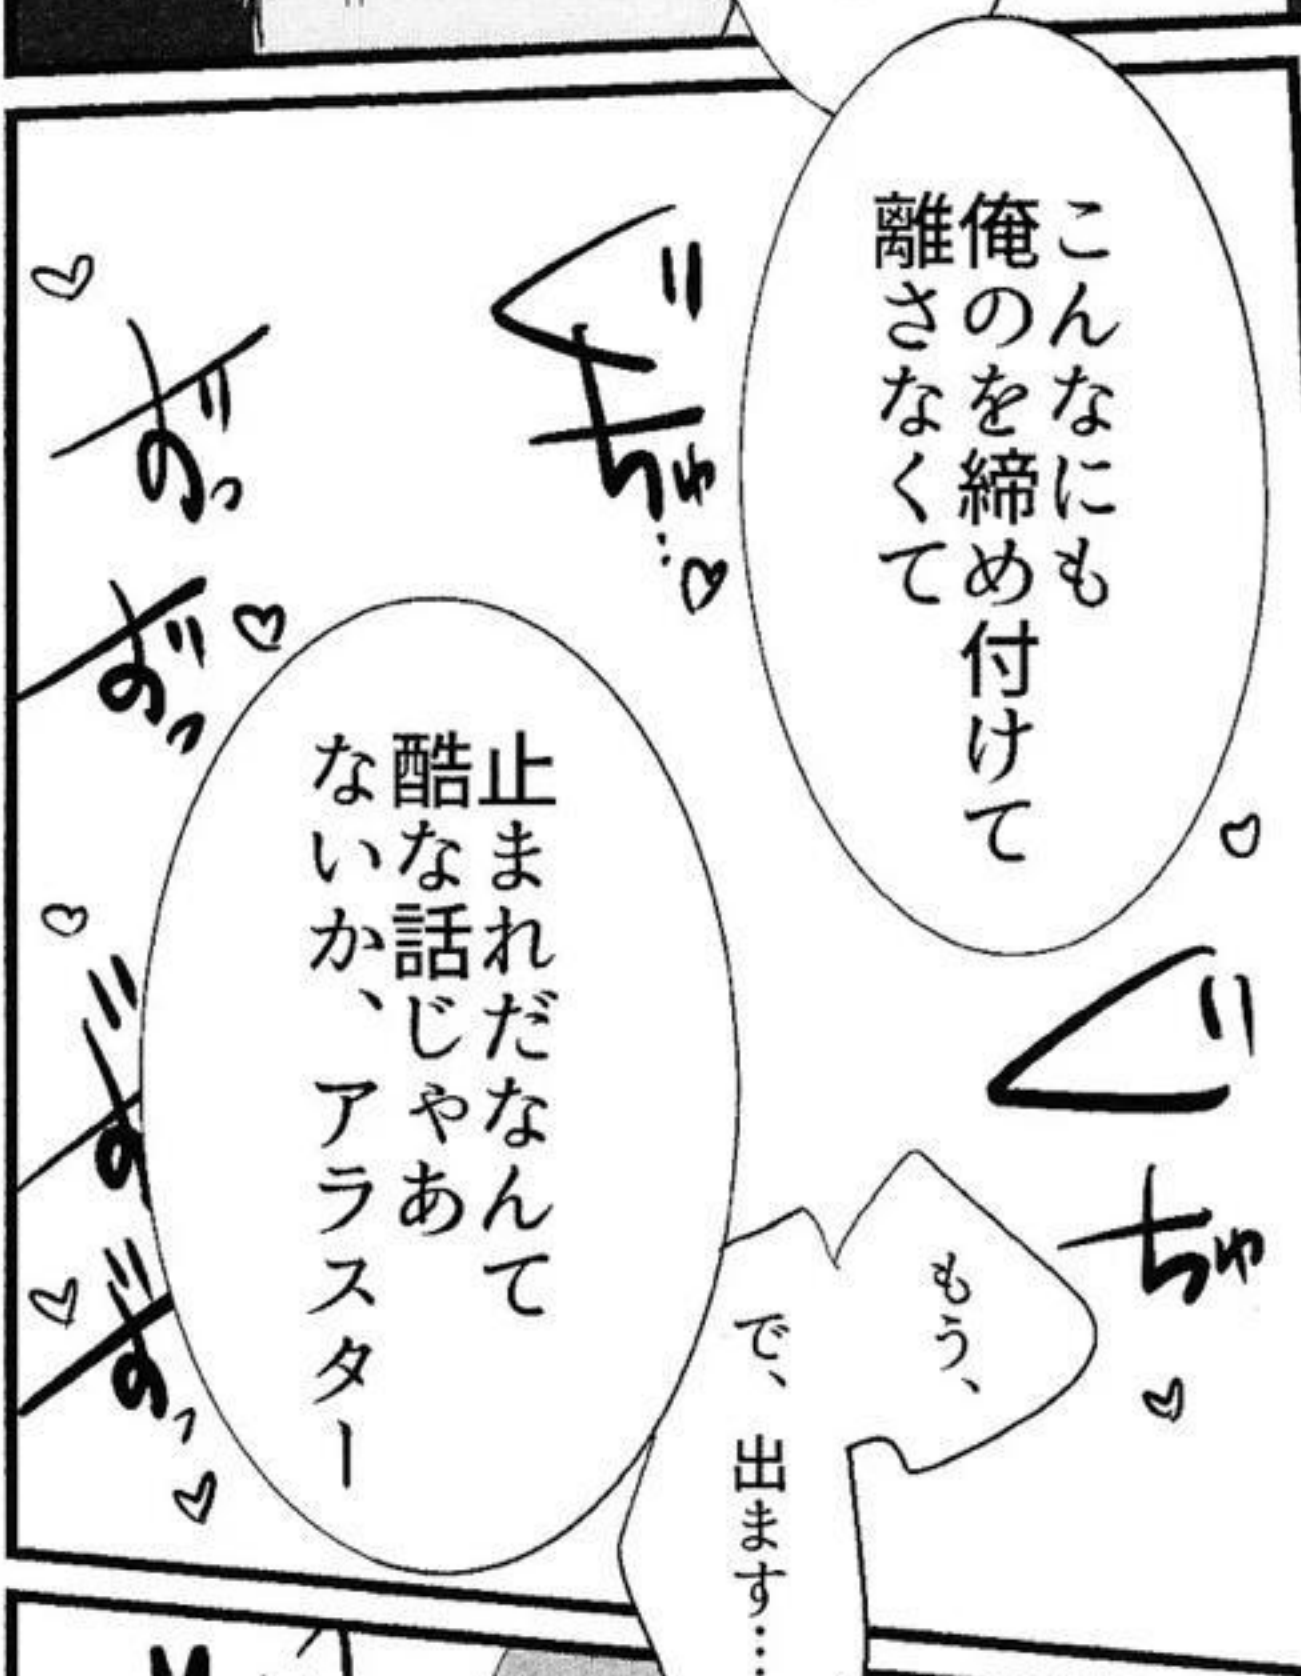 こんなにも
俺のを締め付けて
離さなくて
ぐちゅ…♡
ぐちゅ
ずっ
ずっ
ず
ずっ
止まれだなんて
酷な話じゃあ
ないか、アラスター
もう、
で、出ます…